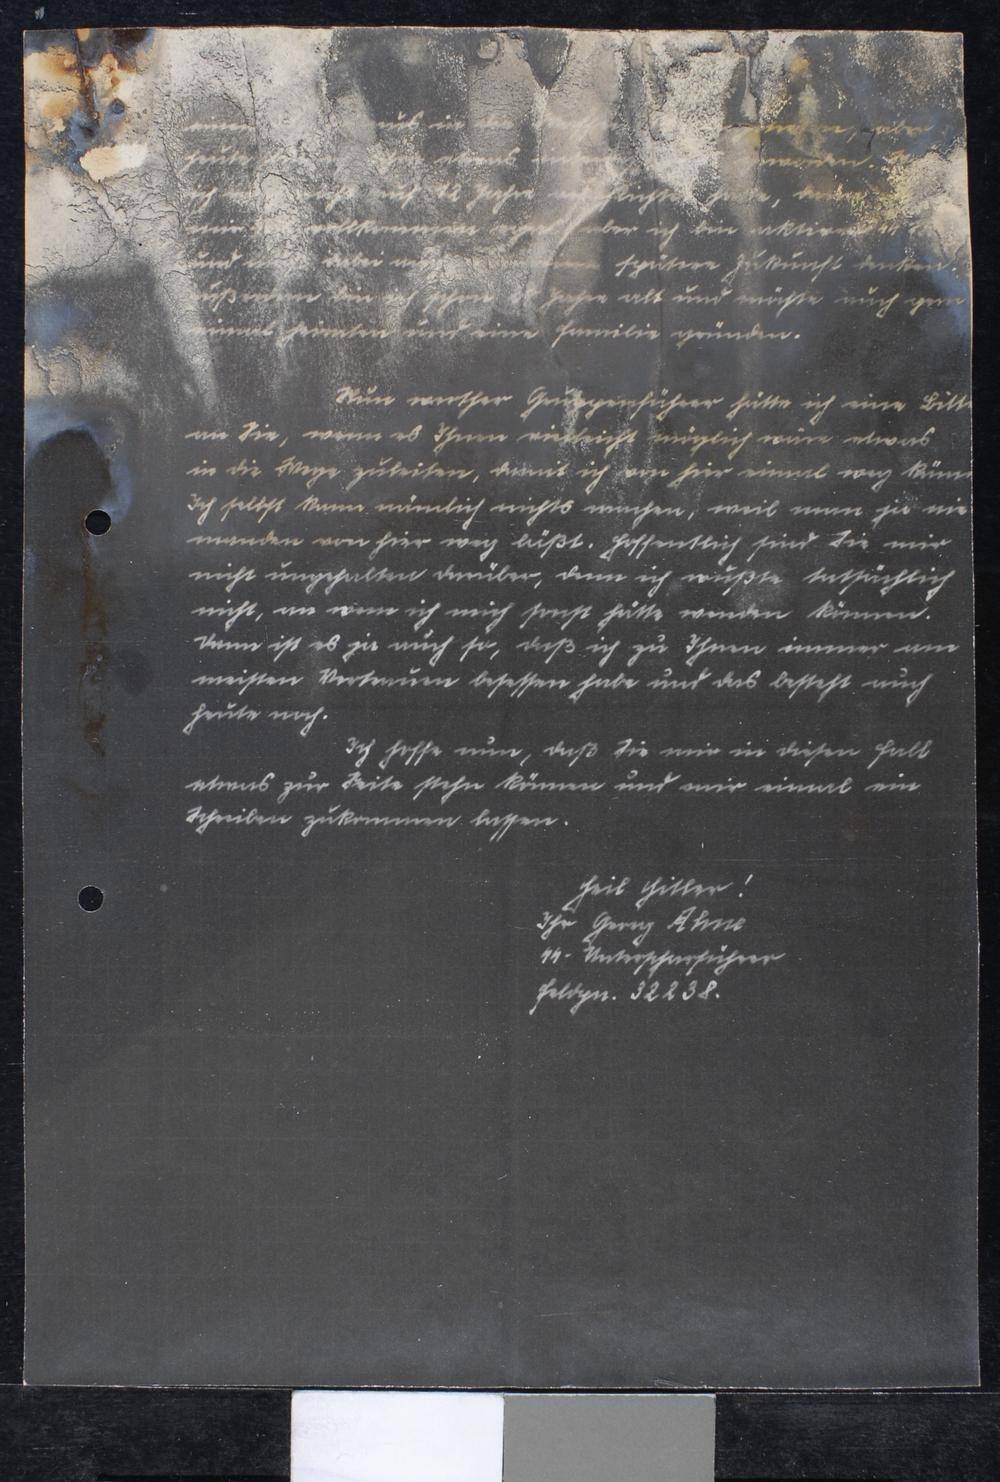 einen aus in der aber
heute etwas
ich nicht auf 12 Jahre hätte,
mir vollkommen egal, aber ich bin aktiver
und muß dabei an spätere Zukunft denken.
Außerdem bin ich schon Jahre alt und möchte auch gern
einmal heiraten und eine Familie gründen.
Nun werther Gruppenführer hätte ich eine Bitte
an Sie, wenn es Ihnen vielleicht möglich wäre etwas
in die Wege zuleiten, damit ich von hier einmal weg könn
Ich selbst kann nämlich nichts machen, weil man ja nie
manden von hier weg läßt. Hoffentlich sind Sie mir
nicht ungehalten darüber, denn ich wüßte tatsächlich
nicht, an wem ich mich sonst hätte wenden können.
Dann ist es ja auch so, daß ich zu Ihnen immer am
meisten Vertrauen besessen habe und das besteht auch
heute noch.
Ich hoffe nun, daß Sie mir in diesen Fall
etwas zur Seite stehn können und mir einmal ein
Schreiben zukommen lassen.
Heil Hitler!
Ihr Georg
SS-Unterscharführer
Feldpn. 32238.